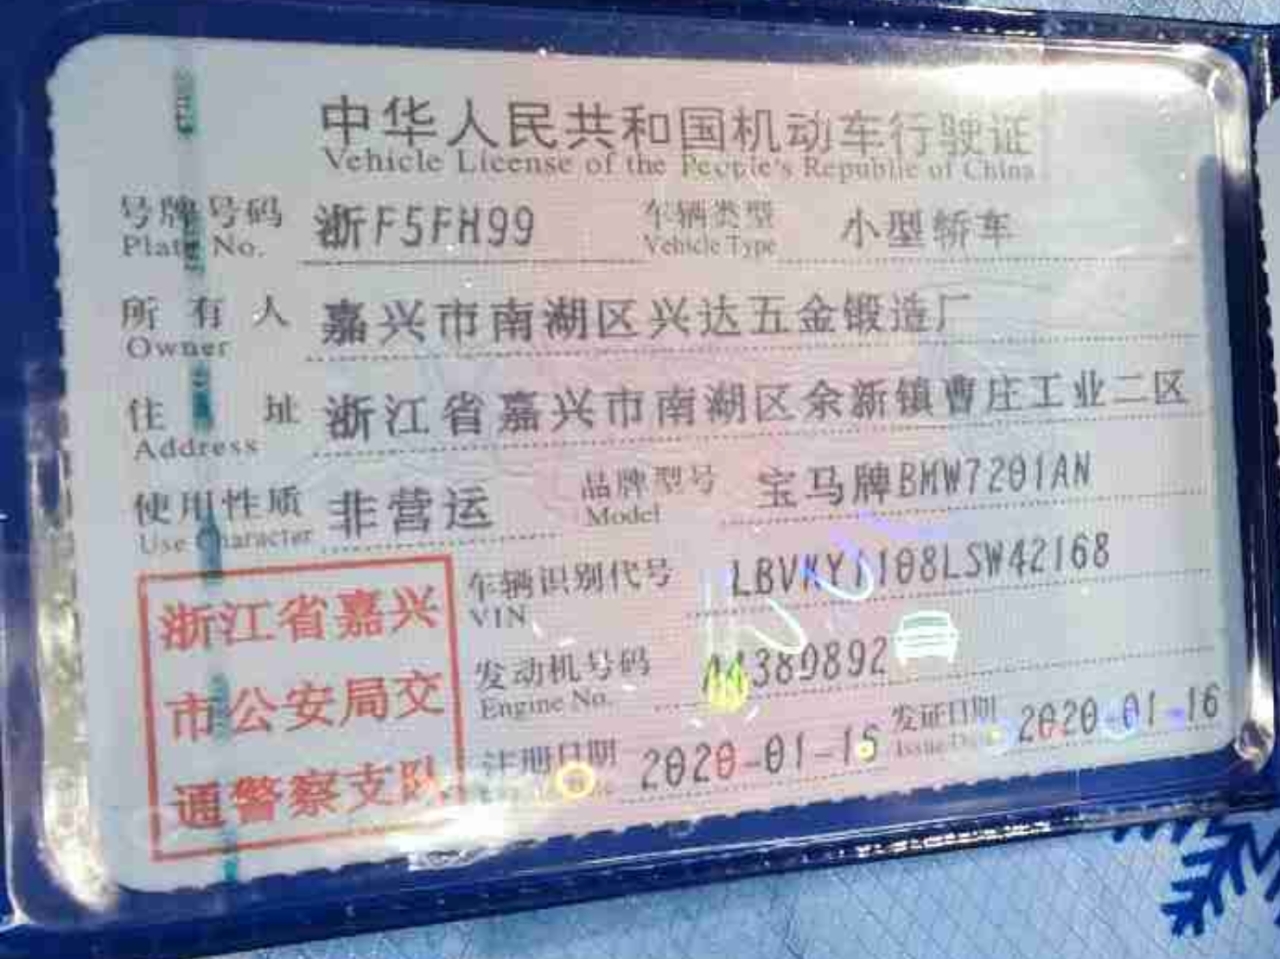 中华人民共和国机动车行驶证
Vehicle License of the People's Republic of China
号牌号码 浙F5FH99 车辆类型 小型轿车
Plate No. Vehicle Type
所有人 嘉兴市南湖区兴达五金锻造厂
Owner
住址 浙江省嘉兴市南湖区余新镇曹庄工业二区
Address
使用性质 非营运 品牌型号 宝马牌BMW7201AN
Use Character Model
浙江省嘉兴
市公安局交
通警察支队
车辆识别代号
VIN
发动机号码
Engine No.
注册日期 发证日期 2020-01-16